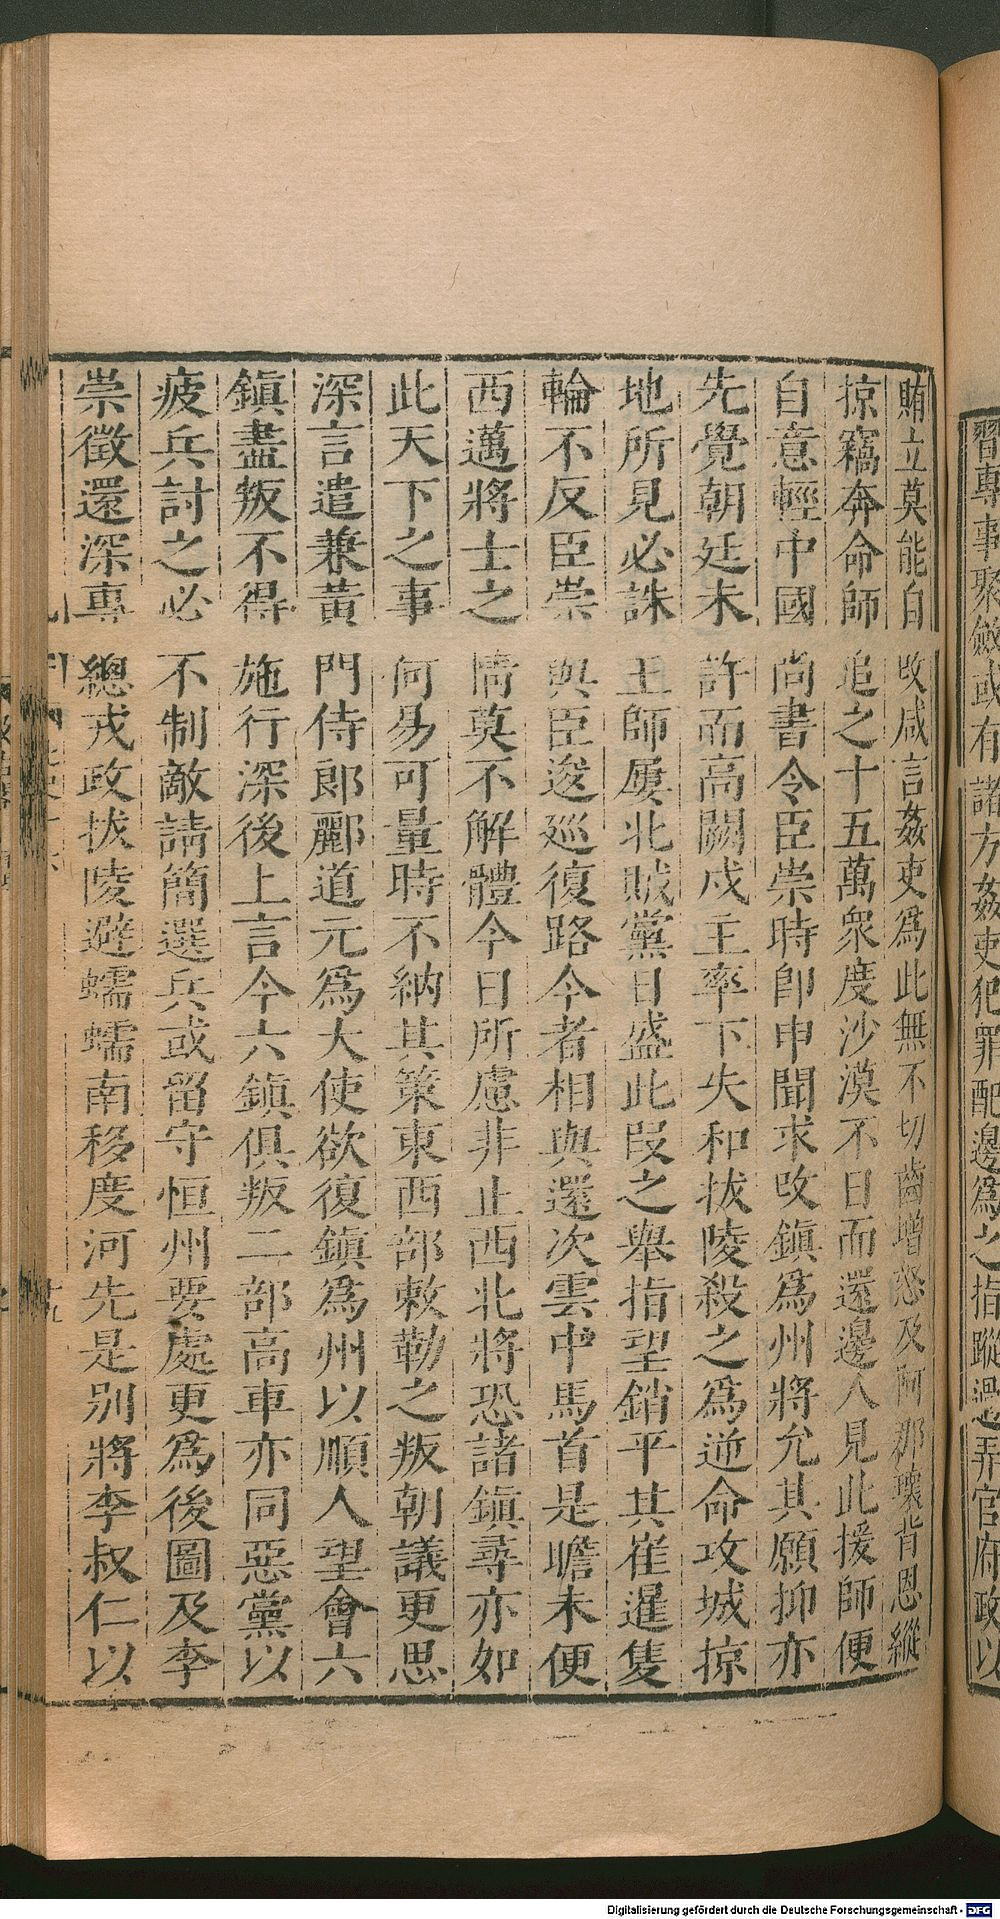 習專事聚斂或有諸方姦吏犯罪配邊爲之指蹤過弄官府政以
賄立莫能自改咸言姦吏爲此無不切齒增怒及阿那瓌背恩縱
掠竊奔命師追之十五萬衆度沙漠不日而還邊人見此援師便
自意輕中國尚書令臣崇時卽申聞求改鎮爲州將允其願抑亦
先覺朝廷未許而高闕戍主率下失和拔陵殺之爲逆命攻城掠
地所見必誅王師屢北賊黨日盛此段之舉指望銷平其崔暹隻
輪不反臣崇與臣逡巡復路今者相與還次雲中馬首是瞻未便
西邁將士之情莫不解體今日所慮非止西北將恐諸鎮尋亦如
此天下之事何易可量時不納其策東西部敕勒之叛朝議更思
深言遣兼黃門侍郎酈道元爲大使欲復鎮爲州以順人望會六
鎮盡叛不得施行深後上言今六鎮俱叛二部高車亦同惡黨以
疲兵討之必不制敵請簡選兵或留守恒州要處更爲後圖及李
崇徵還深專總戎政拔陵避蠕蠕南移度河先是別將李叔仁以
Digitalisierung gefördert durch die Deutsche Forschungsgemeinschaft - DFG